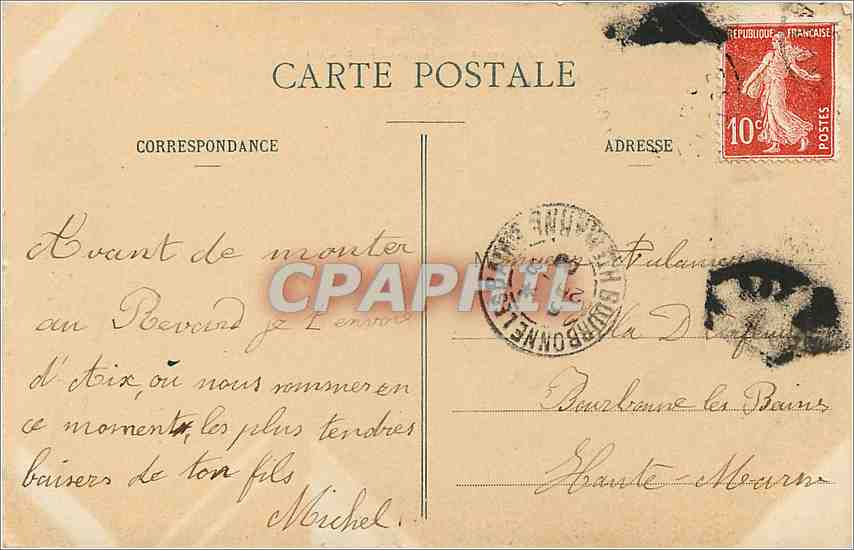 CARTE POSTALE
CORRESPONDANCE
Avant de monter
au Revard je t'envoie
d'Aix, où nous sommes en
ce moment, les plus tendres
baisers de ton fils
Michel.
ADRESSE
REPUBLIQUE FRANÇAISE
10c
POSTES
BOURBONNE LES BAINS
H^TE MARNE
Villa
Bourbonne les Bains
Haute-Marne
CPAPHIL